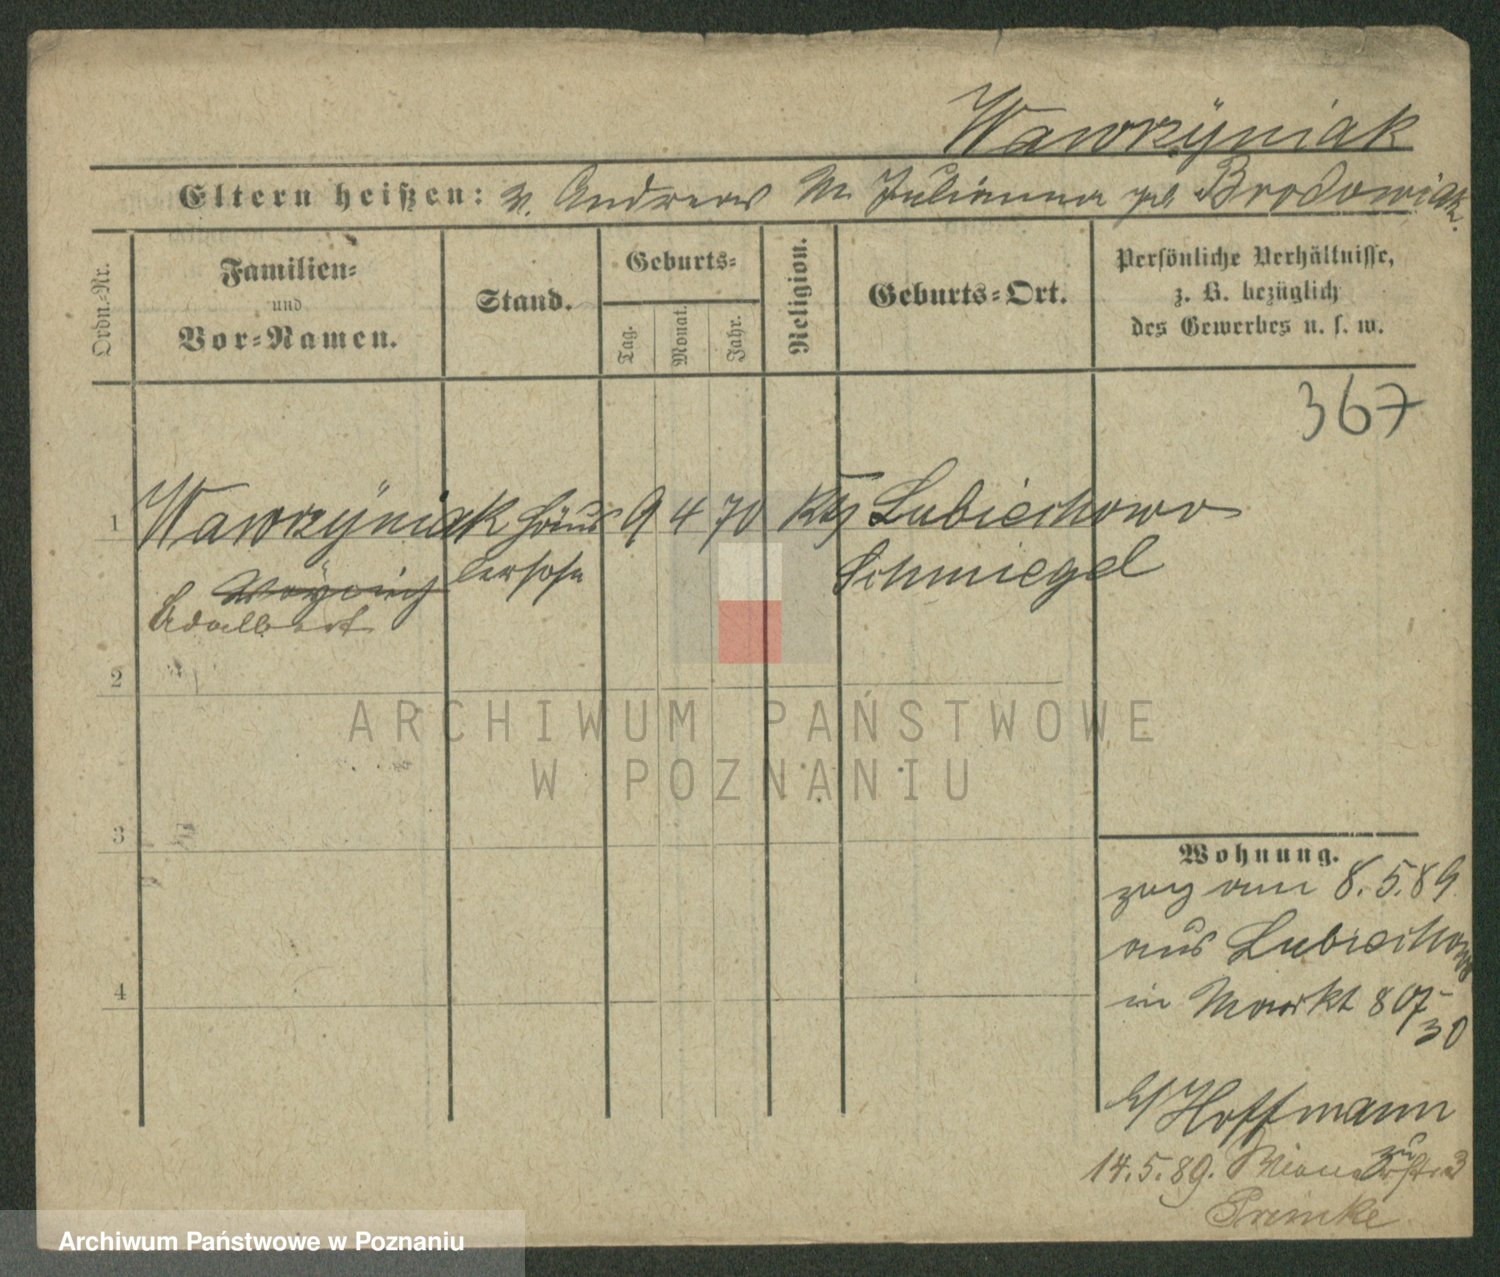 Wawrzÿniak
Eltern heißen: v. Andreas M Julianna geb Brodowiak.
Ordn.-Nr.
Familien-
und
Vor-Namen.
Stand.
Geburts-
Tag.
Monat.
Jahr.
Religion.
Geburts-Ort.
Persönliche Verhältnisse,
z. B. bezüglich
des Gewerbes u. s. w.
367
1 Wawrzÿniak Häus 9 4 70 Kth Lubiechowo
lersohn Schmiegel
Adalbert
2
3
4
ARCHIWUM PAŃSTWOWE
W POZNANIU
Wohnung.
zog am 8.5.89
aus Lubiechowo
in Markt 80
30
b/ Hoffmann
14.5.89. 3
Archiwum Państwowe w Poznaniu